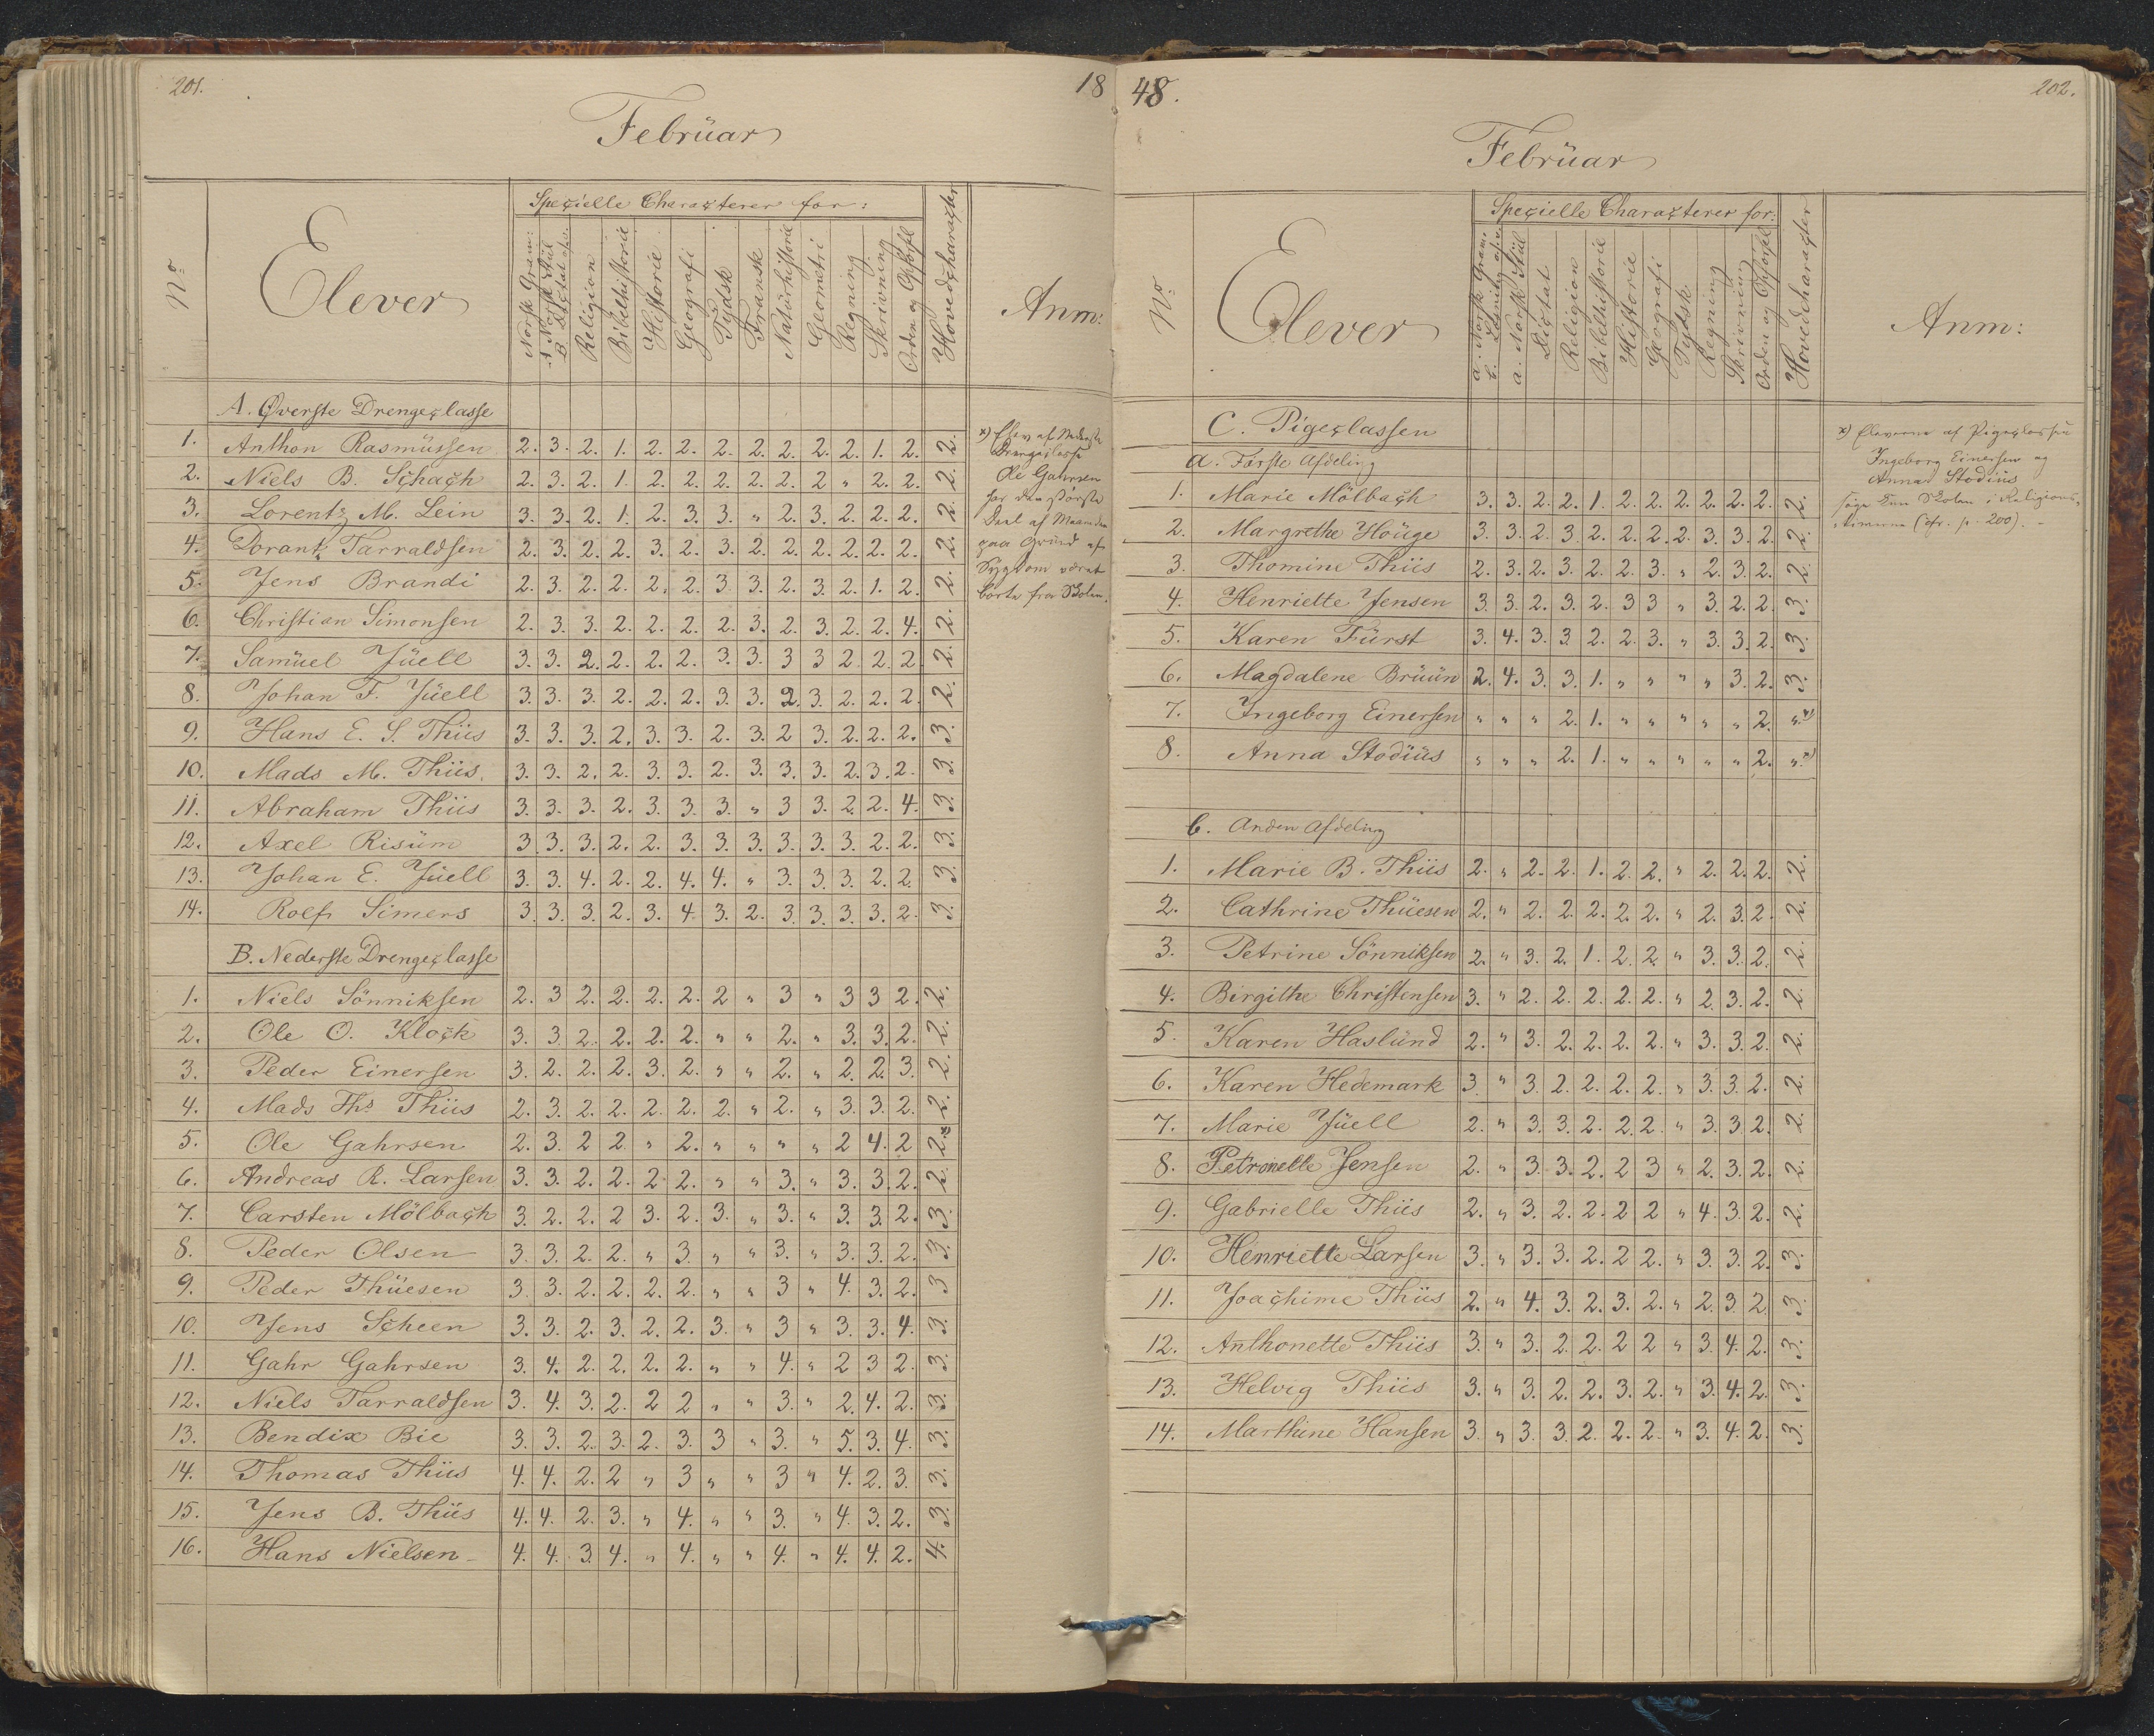 201.
18
Februar
No
Elever
Specielle Characterer for:
Norsk Gram:
A Norsk Stiil
B Dictat
Religion
Bibelhistorie
Historie
Geografi
Tydsk
Fransk
Naturhistorie
Geometri
Regning
Skrivning
Orden og Opførsl
Hovedcharacter
Anm:
A. Øverste Drengeclasse
1. Anthon Rasmüssen 2. 3. 2. 1. 2. 2. 2. 2. 2. 2. 2. 1. 2. 2.
2. Niels B. Schach 2. 3. 2. 1. 2. 2. 2. 2. 2. 2 " 2. 2. 2.
3. Lorentz M. Lein 3. 3. 2. 1. 2. 3. 3. " 2. 3. 2. 2. 2. 2.
4. Dorantz Tarraldsen 2. 3. 2. 2. 3. 2. 3. 2. 2. 2. 2. 2. 2. 2.
5. Jens Brandi 2. 3. 2. 2. 2. 2. 3. 3. 2. 3. 2. 1. 2. 2.
6. Christian Simonsen 2. 3. 3. 2. 2. 2. 2. 3. 2. 3. 2. 2. 4. 2.
7. Samüel Jüell 3. 3. 2. 2. 2. 2. 3. 3. 3 3 2 2. 2. 2.
8. Johan F. Jüell 3. 3. 3. 2. 2. 2. 3. 3. 2. 3. 2. 2. 2. 2.
9. Hans E. S. Thiis 3. 3. 3. 2. 3. 3. 2. 3. 2 3. 2. 2. 2. 3.
10. Mads M. Thiis. 3. 3. 2. 2. 3. 3. 2. 3. 3. 3. 2. 3. 2. 3.
11. Abraham Thiis 3. 3. 3. 2. 3. 3. 3. " 3 3. 2. 2. 4. 3.
12. Axel Risüm 3. 3. 3. 2. 2. 3. 3. 3. 3. 3. 3. 2. 2. 3.
13. Johan E. Jüell 3. 3. 4. 2. 2. 4. 4. " 3. 3. 3. 2. 2. 3.
14. Rolf Simers 3. 3. 3. 2. 3. 4. 3. 2. 3. 3. 3. 3. 2. 3.
B. Nederste Drengeclasse
1. Niels Sönniksen 2. 3 2. 2. 2. 2. 2 " 3 " 3 3 2. 2.
2. Ole O. Klock 3. 3. 2. 2. 2. 2. " " 2. " 3. 3. 2. 2.
3. Peder Einersen 3. 2. 2. 2. 3. 2. " " 2. " 2. 2. 3. 2.
4. Mads Ths Thiis 2. 3. 2. 2. 2. 2. 2. " 2. " 3. 3. 2. 2.
5. Ole Gahrsen 2. 3. 2 2. " 2. " " " " 2 4. 2 2.x)
6. Andreas R. Larsen 3. 3. 2. 2. 2. 2. " " 3. " 3. 3. 2. 2.
7. Carsten Mölbach 3. 2. 2. 2 3. 2. 3. " 3. " 3. 3. 2. 3.
8. Peder Olsen 3. 3. 2. 2. " 3. " " 3. " 3. 3. 2. 3.
9. Peder Thüesen 3. 3. 2. 2. 2. 2. " " 3 " 4. 3. 2. 3
10. Jens Scheen 3. 3. 2. 3. 2. 2. 3. " 3 " 3. 3. 4. 3.
11. Gahr Gahrsen 3. 4. 2. 2. 2. 2. " " 4. " 2 3 2. 3.
12. Niels Tarraldsen 3. 4. 3. 2. 2 2 " " 3. " 2. 4. 2. 3.
13. Bendix Bie 3. 3. 2. 3. 2. 3. 3 " 3. " 5. 3. 4. 3.
14. Thomas Thiis 4. 4. 2. 2 " 3 " " 3 " 4. 2. 3. 3.
15. Jens B. Thiis 4. 4. 2. 3. " 4. " " 3. " 4. 3. 2. 3.
16. Hans Nielsen 4. 4. 3. 4. " 4. " " 4. " 4. 4. 2. 4.
x) Elev af Nederste
Drengeclasse
Ole Gahrsen
har den største
Deel af Maaneden
paa Grund af
Sygdom været
borte fra Skolen.
48.
202.
Februar
No
Elever
Specielle Characterer for:
a. Norsk Gram.
a. Norsk Stiil
Dictat
Religion
Bibelhistorie
Historie
Geografi
Tydsk
Regning
Skrivning
Orden og Opførsl
Hovedcharacter
Anm:
C. Pigeclassen
a. Første Afdeling
1. Marie Mölbach 3. 3. 2. 2. 1. 2. 2. 2. 2. 2. 2. 2.
2. Margrethe Houge 3. 3. 2. 3. 2. 2. 2. 2. 3. 3. 2. 2.
3. Thomine Thiis 2. 3. 2. 3. 2. 2. 3. " 2. 3. 2. 2.
4. Henriette Jensen 3. 3. 2. 3. 2. 3 3 " 3. 2. 2. 3.
5. Karen Fürst 3. 4. 3. 3 2. 2. 3. " 3. 3. 2. 3.
6. Magdalene Brüün 2. 4. 3. 3. 1. " " " " 3. 2. 3.
7. Ingeborg Einersen " " " 2. 1. " " " " " 2. "x)
8. Anna Stodiüs " " " 2. 1. " " " " " 2. "x)
b. Anden Afdeling
1. Marie B. Thiis 2. " 2. 2. 1. 2. 2. " 2. 2. 2. 2.
2. Cathrine Thüesen 2. " 2. 2. 2. 2. 2. " 2. 3. 2. 2.
3. Petrine Sönniksen 2. " 3. 2. 1. 2. 2. " 3. 3. 2. 2.
4. Birgithe Christensen 3. " 2. 2. 2. 2. 2. " 2. 3. 2. 2.
5. Karen Haslünd 2. " 3. 2. 2. 2. 2. " 3. 3. 2. 2.
6. Karen Hedemark 3. " 3. 2. 2. 2. 2. " 3. 3. 2. 2.
7. Marie Jüell 2. " 3. 3. 2. 2. 2. " 3. 3. 2. 2.
8. Petronelle Jensen 2. " 3. 3. 2. 2 3 " 2. 3. 2. 2.
9. Gabrielle Thiis 2. " 3. 2. 2. 2 2 " 4. 3. 2. 2.
10. Henriette Larsen 3. " 3. 3. 2. 2 2. " 3. 3. 2. 3.
11. Joachime Thiis 2. " 4. 3. 2. 3. 2. " 2. 3. 2. 3.
12. Anthonette Thiis 3. " 3. 2. 2. 2 2 " 3. 4. 2. 3.
13. Helvig Thiis 3. " 3. 2. 2. 3. 2. " 3. 4. 2. 3.
14. Marthine Hansen 3. " 3. 3. 2. 2. 2. " 3. 4. 2. 3.
x) Eleverne af Pigeclassen
Ingeborg Einersen og
Anna Stodiüs
søge kun Skolen i Religions-
timerne (cfr. p. 200).